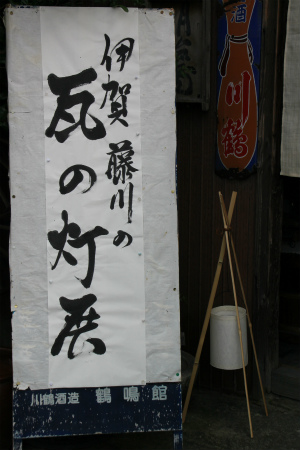 伊賀 藤川の
瓦の灯展
川鶴酒造 鶴鳴館
酒 川鶴